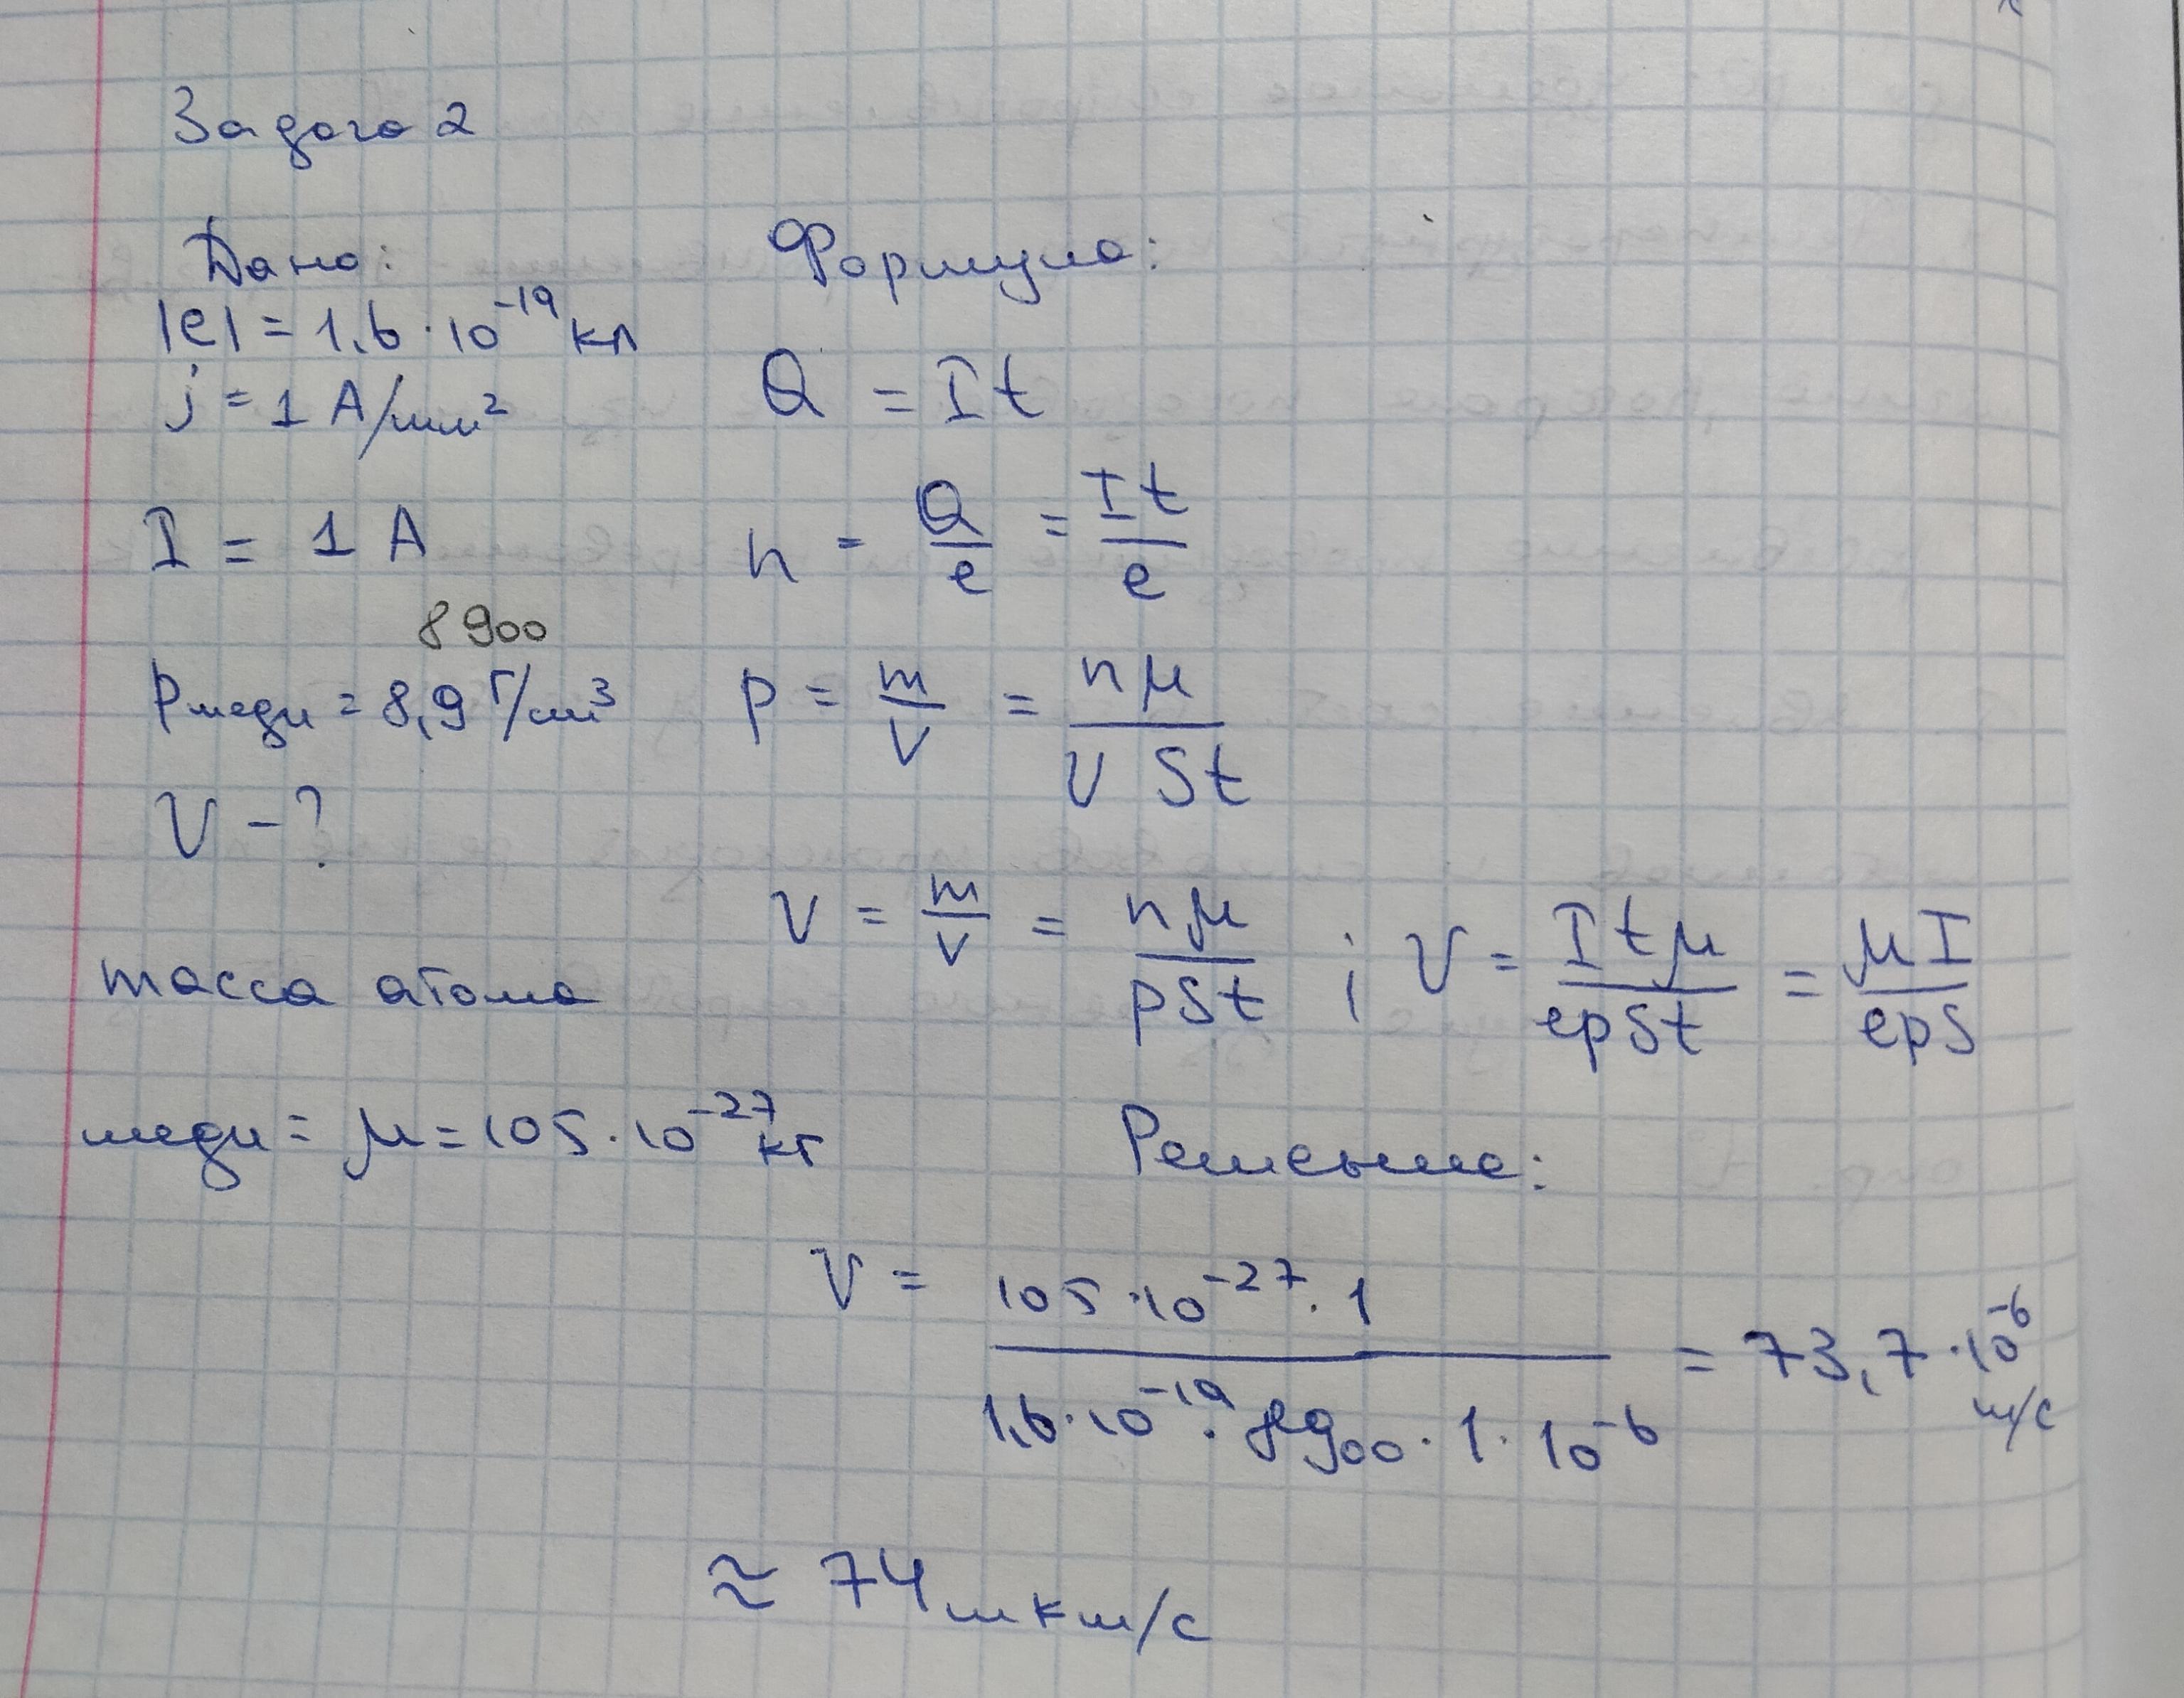 Задача 2
Дано:
|e| = 1,6 · 10⁻¹⁹ кл
j = 1 А/мм²
I = 1 А
8900
ρмеди = 8,9 г/см³
V - ?
масса атома
меди = μ = 105 · 10⁻²⁷ кг
Формула:
Q = It
n = Q/e = It/e
ρ = m/V = nμ/(V St)
V = m/V = nμ/(ρSt) ; V = Itμ/(eρSt) = μI/(eρS)
Решение:
V = (105 · 10⁻²⁷ · 1)/(1,6 · 10⁻¹⁹ · 8900 · 1 · 10⁻⁶) = 73,7 · 10⁻⁶ м/с
≈ 74 мкм/с